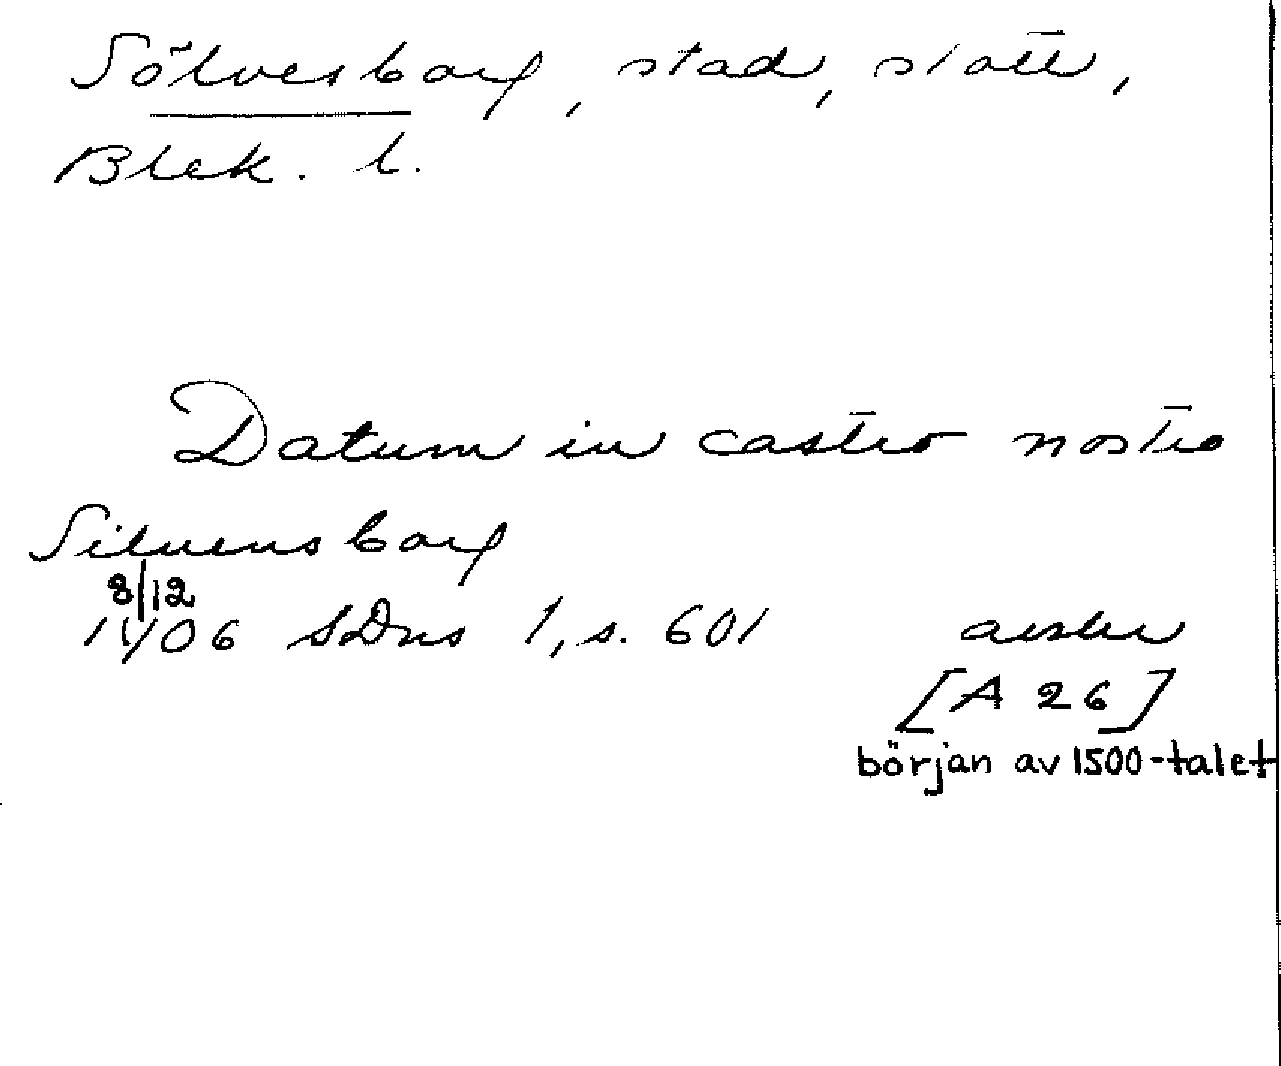 Sölvesborg, stad, slott,
Blek. l.
Datum in castro nostro
Siluensborg
8/12
1406 SDns 1, s. 601 avskr
[A 26]
början av 1500-talet